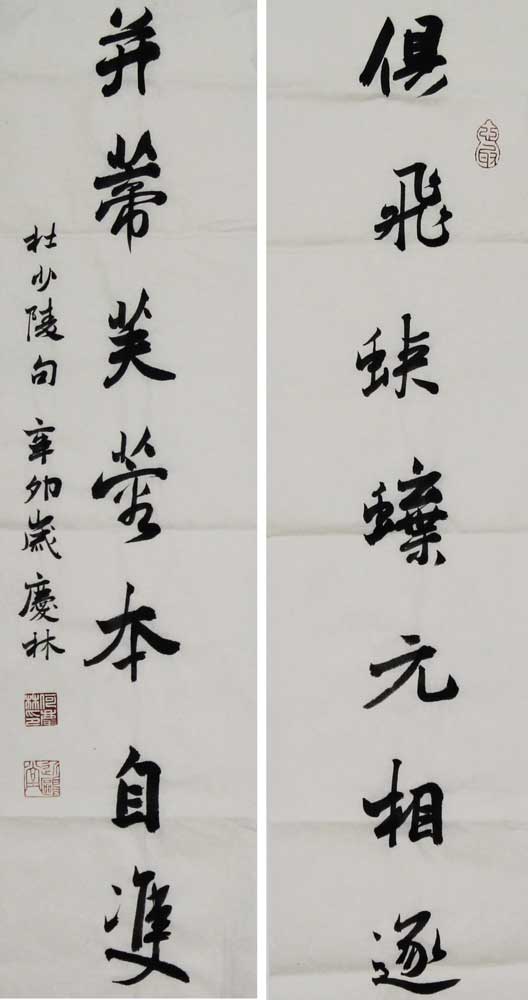 俱飛蛺蝶元相逐
并蒂芙蓉本自雙
杜少陵句 辛卯歲慶林